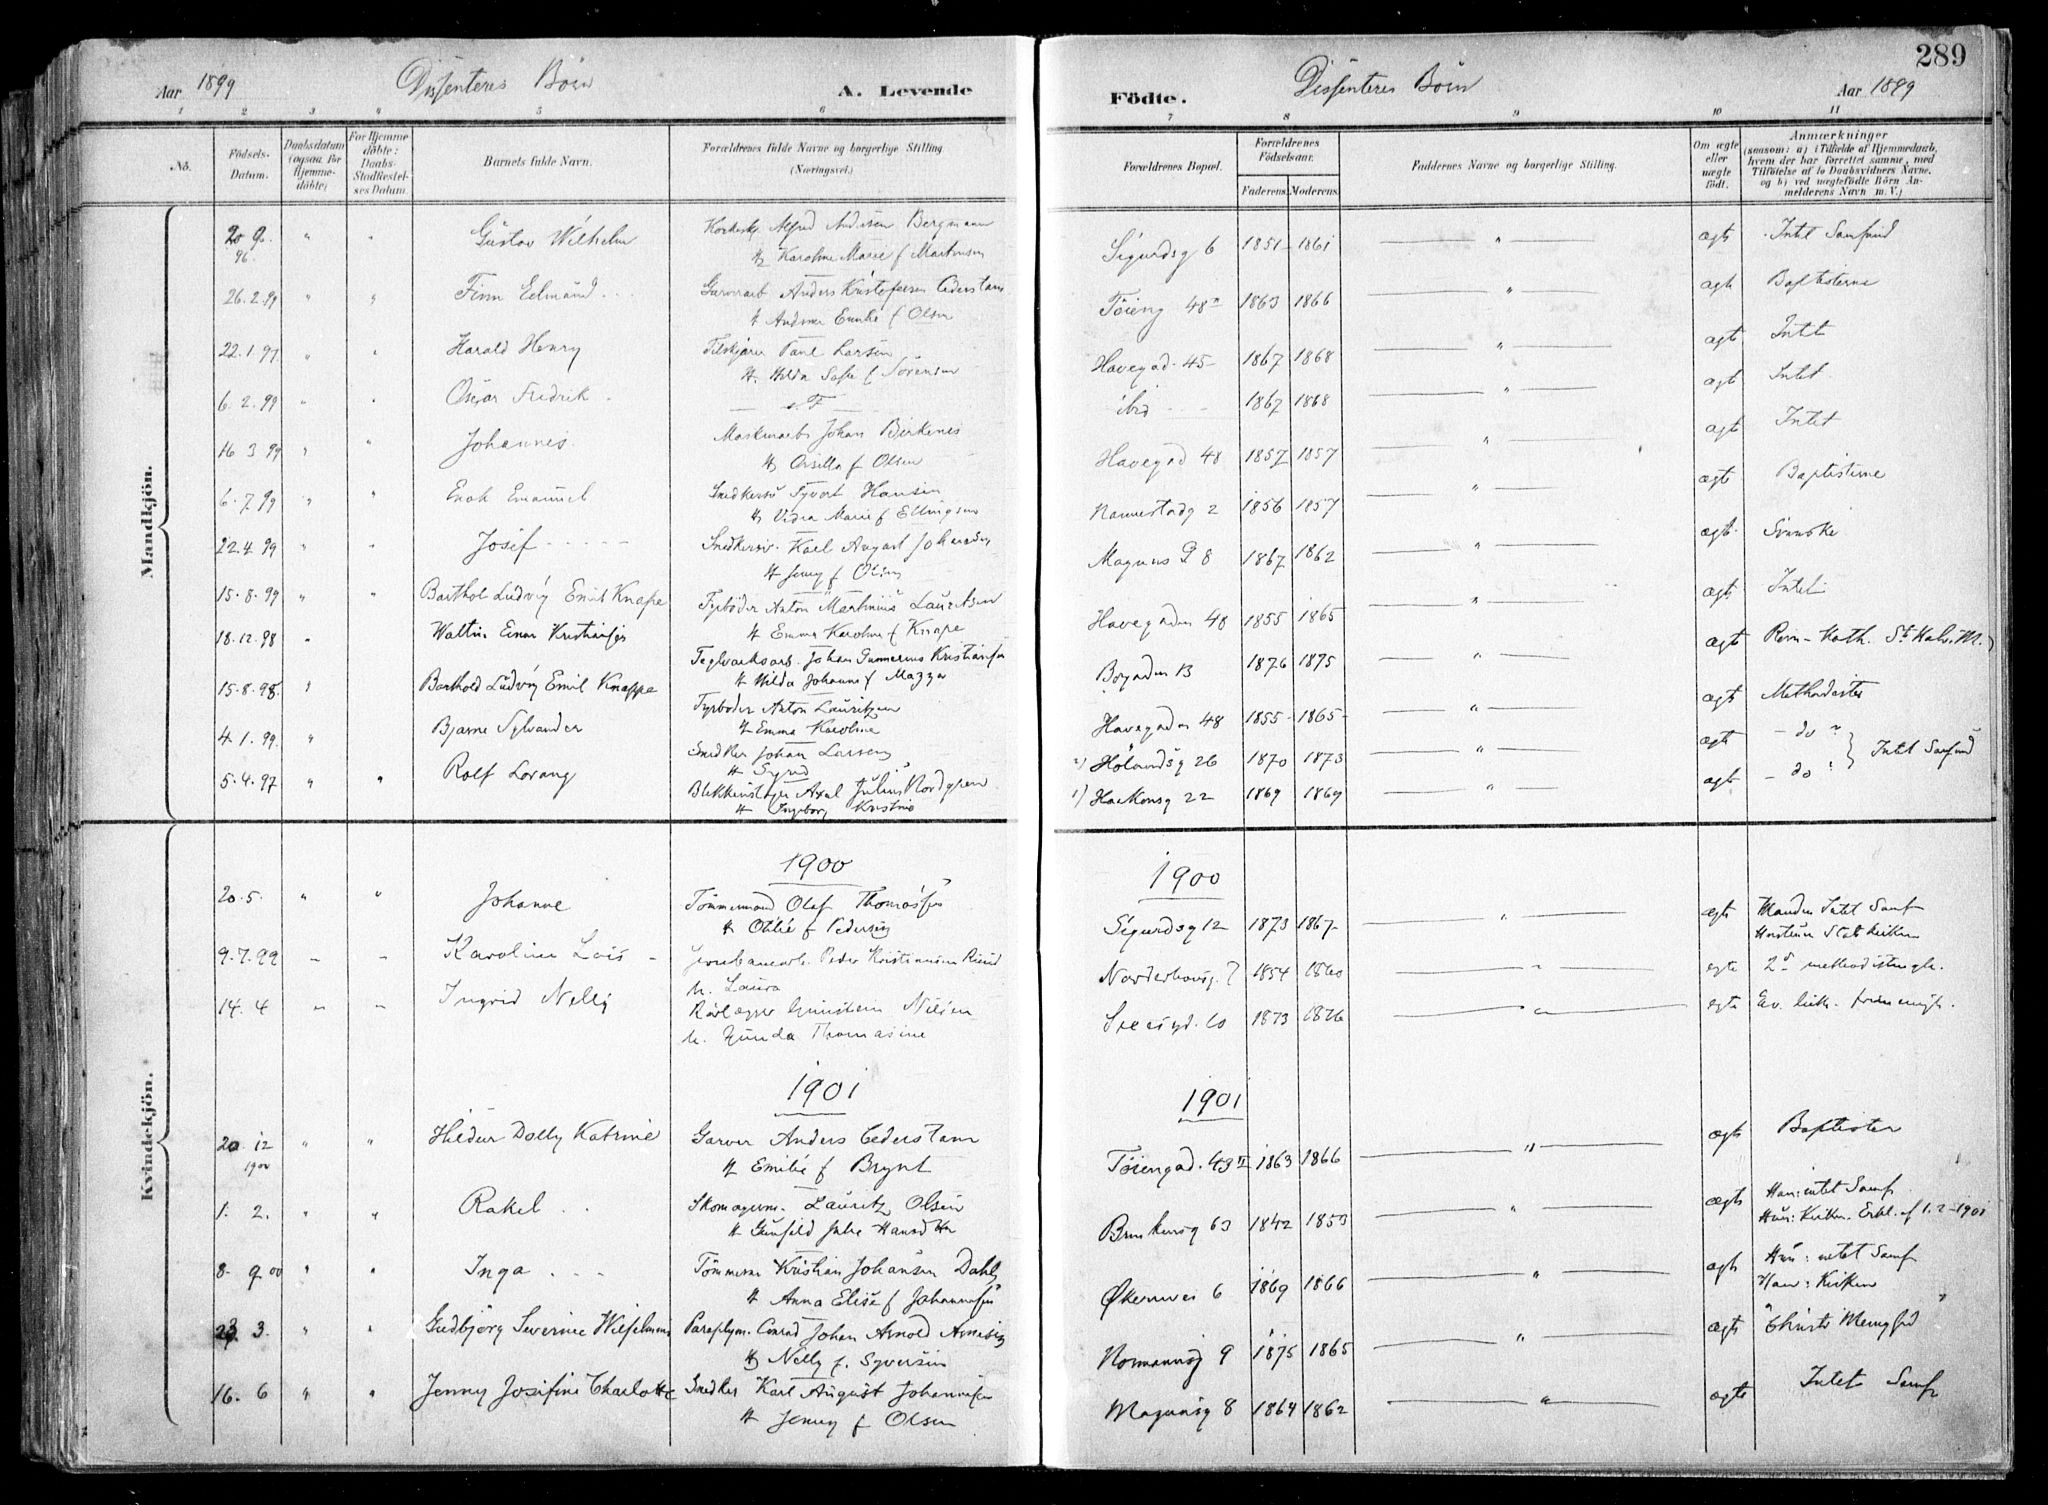 289
Aar 1899 Dissenteres Börn A. Levende
Födte. Dissenteres Börn Aar 1899
1 2 3 4 5 6 7 8 9 10 11
No. Födsels-Datum. Daabsdatum (ogsaa for Hjemmedöbte) For Hjemmedöbte: Daabs-Stadfæstelses Datum. Barnets fulde Navn. Forældrenes fulde Navne og borgerlige Stilling (Næringsvei.) Forældrenes Bopæl. Forældrenes Födselsaar. Faderens. Moderens. Faddernes Navne og borgerlige Stilling. Om ægte eller uægte födt. Anmærkninger (saasom: a) i Tilfælde af Hjemmedaab, hvem der har forrettet samme, med Tilföielse af to Daabsvidners Navne, og b) ved uægtefödte Börn Anmelderens Navn m. V.)
Mandkjön.
20 9. 96. " " Gustav Wilhelm Alfred Andersen Bergmann Sigurdsg 6 1851 1861 " ægte Intet Samfund
H Karoline Marie f Martinsen
26.2.99 " " Finn Edmund Garverarb Anders Kristofersen Cederstam Töieng 48 II 1863 1866 " ægte Baptisterne
H Andrine Emilie f Olsen
22.1.97 " " Harald Henry Filskjærer Paul Larsen Havegad. 45 1867 1868 " ægte Intet
H. Hilda Sofie f Sörensen
6.2.99 " " Oscar Fredrik s. F ibid 1867 1868 " ægte Intet
16 3 99 " " Johannes Maskinarb Johan Birkenes Havegad 48 1857 1857 " ægte Intet
H f Olsen
6.7.99 " " Enok Emanuel Snedkersv Hansen Nannestadg 2 1856 1857 " ægte Baptisterne
H Marie f Ellingsen
22.4.99 " " Josef Snedkersv. Karl August Johansen Magnus G 8 1867 1862 " ægte Svenske
H Jenny f Olsen
15.8.99 " " Barthol Ludvig Emil Knape Fyrböder Anton Martinius Lauritsen Havegaden 48 1855 1865 " ægte Intet
H Emma Karoline f Knape
18.12.98 " Einar Kristiansen Teglværksarb. Johan Gunnerius Kristiansen Bogaden 13 1876 1875 " ægte Rom-Kath. St Halv. M.)
H Hilda Johanne f
15.8.98. " Barthold Ludvig Emil Knappe Fyrböder Anton Lauritzen Havegaden 48 1855 1865 " ægte Methodister
H Emma Karoline
4.1.99. " Bjarne Sylvander Snedker Johan Larsen 2) Hölandsg 26 1870 1873 " ægte - do " } Intet Samfund
H
5.4.97 " " Rolf Lorang Blikkenslager Axel Julius Nordgren 1) Haakonsg 22 1869 1869 " ægte - do "
H Ingeborg Kristine
Kvindekjön.
1900 1900
20.5. " " Johanne Tömmermand Olaf Thomassen Sigurdsg 12 1873 1867 " ægte Manden Intet Samf
H Otilie f Pedersen Hustruen Statskirken
9.7.99 " " Karoline Peder Kristiansen Norderhovsg. 7 1854 1860 " egte 2den methodistmgh.
h. Laura
14.4 " " Ingrid Nelly Nilsen 10 1873 1876 " egte Ev. luth. frimenigh.
h. Gunda Thomasine
1901 1901
20 12 1900 " " Hildur Dolly Katrine Garver Anders Cederstam Töiengad. 43 II 1863 1866 " ægte Baptister
H Emilie f Brynt
1. 2. " " Rakel Skomagerm. Lauritz Olsen 63 1842 1853 " ægte Han: intet Samf
H Gunhild Julie Hansdtr Hun: Kirken. Erkl. af 1.2-1901
8. 9.00 " " Inga Tömmerm Kristian Johansen Dahl Økernvei 6 1869 1866 " ægte Hun: intet Samf
H Anna Elise f Johannesen Han: Kirken
23 3. " " Gudbjörg Severine Wilhelmine Paraplym. Conrad Johan Arnold Arnesen Normannsg 9 1875 1865 " ægte Christi Menighed
H Nelly f. Syversen
16. 6 " " Jenny Josefine Charlotte Snedker Karl August Johannesen Magnusg 8 1864 1862 " ægte Intet Samf
H Jenny f Olsen